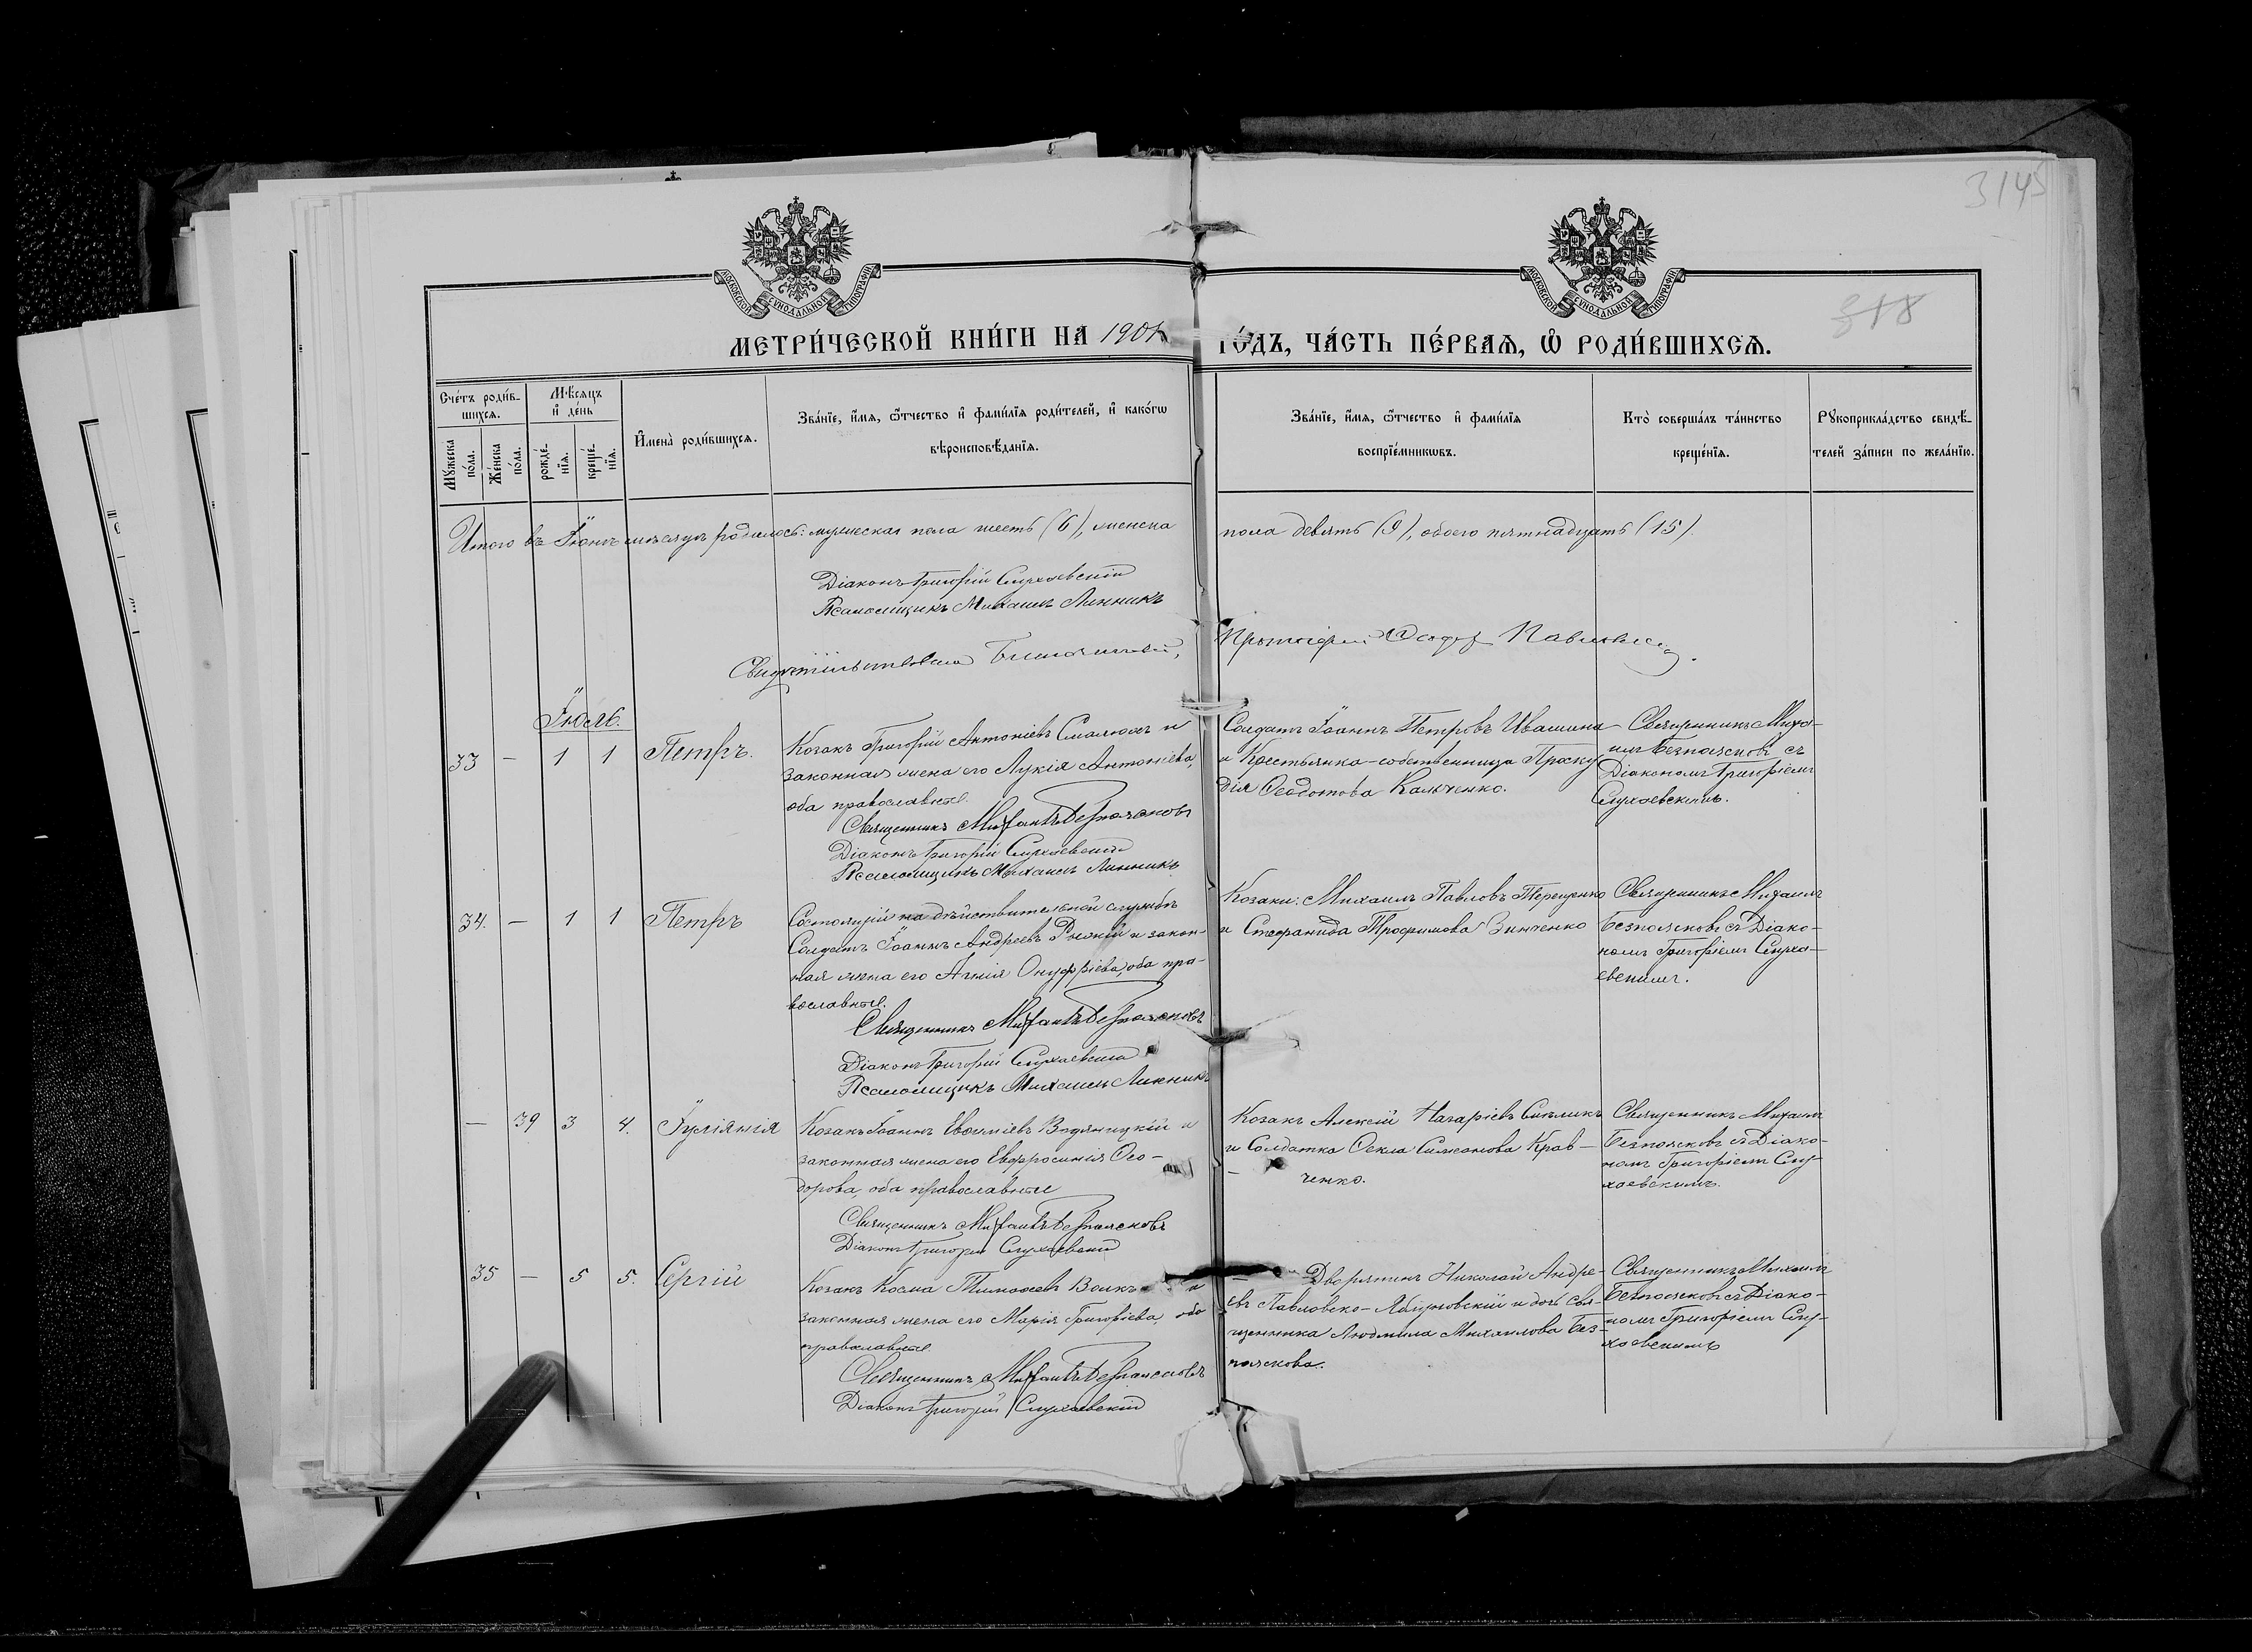 3145
318
МОСКОВСКОЙ СУНОДАЛЬНОЙ ТИПОГРАФІИ
МОСКОВСКОЙ СУНОДАЛЬНОЙ ТИПОГРАФІИ
МЕТРИ́ЧЕСКОЙ КНИ́ГИ НА 1901 ГО́ДЪ, ЧА́СТЬ ПЕ́РВАЯ, Ѡ РОДИ́ВШИХСЯ.
Сче́тъ роди́в-
шихся.
Мѣ́сяцъ
и҆ де́нь
Мꙋ́жеска
по́ла.
Же́нска
по́ла.
рожде́-
нїя.
креще́-
нїя.
И҆мена̀ роди́вшихся.
Зва́нїе, и҆́мя, ѻ҆́тчество и҆ фами́лїя роди́телей, и҆ како́гѡ
вѣроисповѣ́данїя.
Зва́нїе, и҆́мя, ѻ҆́тчество и҆ фами́лїя
воспрїе́мникѡвъ.
Кто̀ соверша́лъ та́инство
креще́нїя.
Рꙋкоприкла́дство свидѣ́-
телей за́писи по жела́нїю.
Итого въ Іюнѣ мѣсяцѣ родилось: мужеска пола шесть (6), женска пола девять (9), обоего пятнадцать (15).
Діаконъ Григорій Слухаевскій
Псаломщикъ Михаилъ Линникъ
Іюль.
33 — 1 1 Петръ.
Козакъ Григорій Антоніевъ Смалюхъ и
законная жена его Лукія Антоніева,
оба православные.
Священникъ Михаилъ Безпоясковъ
Діаконъ Григорій Слухаевскій
Псаломщикъ Михаилъ Линникъ
Солдатъ Іоаннъ Петровъ Ивашина
и Крестьянка-собственница Проску
дія Ѳеодотова Кальченко.
Священникъ Миха-
илъ Безпоясковъ съ
Діакономъ Григоріемъ
Слухаевскимъ.
34. — 1 1 Петръ
Состоящій на дѣйствительной службѣ
Солдатъ Іоаннъ Андреевъ Рыжій и закон-
ная жена его Агнія Онуфріева, оба пра-
вославные.
Священникъ Михаилъ Безпоясковъ
Діаконъ Григорій Слухаевскій
Псаломщикъ Михаилъ Линникъ
Козаки: Михаилъ Павловъ Терещенко
и Стефанида Трофимова Зинченко
Священникъ Михаилъ
Безпоясковъ съ Діако-
номъ Григоріемъ Слуха-
евскимъ.
— 39 3 4. Іуліанія
Козакъ Іоаннъ Евѳиміевъ Водяницкій и
законная жена его Евфросинія Ѳео-
дорова, оба православные
Священникъ Михаилъ Безпоясковъ
Діаконъ Григорій Слухаевскій
Козакъ Алексій Назаріевъ Смѣликъ
и Солдатка Ѳекла Симеонова Крав-
— ченко.
Священникъ Михаилъ
Безпоясковъ съ Діако-
номъ Григоріемъ Слу-
хаевскимъ.
35 — 5 5. Сергій
Козакъ Косма Тимоѳеевъ Волкъ и
законная жена его Марія Григоріева, оба
православные.
Священникъ Михаилъ Безпоясковъ
Діаконъ Григорій Слухаевскій
— Дворянинъ Николай Андре-
евъ Павловско- и дочь Свя-
щенника Людмила Михаилова Без-
пояскова.
Священникъ Михаилъ
Безпоясковъ съ Діако-
номъ Григоріемъ Слу-
хаевскимъ